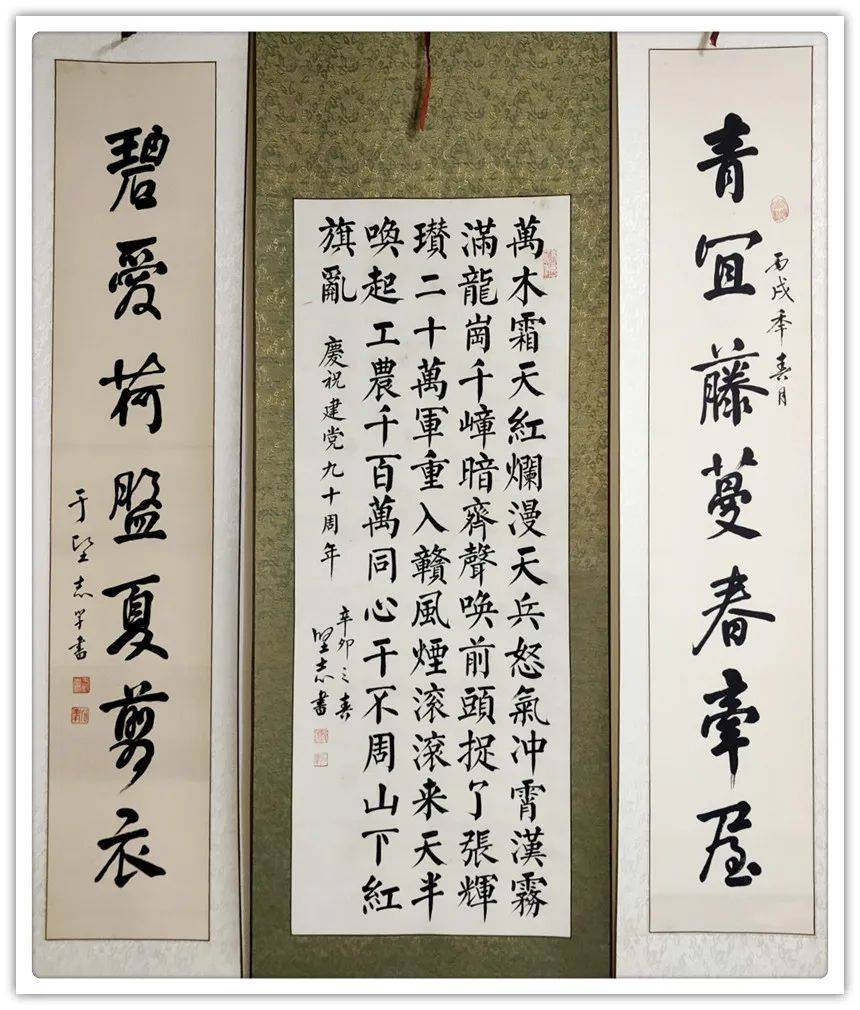 青宜藤蔓春牽屋
丙戌年春月
萬木霜天紅爛漫天兵怒氣冲霄漢霧
滿龍崗千嶂暗齊聲唤前頭捉了張輝
瓚二十萬軍重入贛風煙滚滚来天半
唤起工農千百萬同心干不周山下紅
旗亂 慶祝建党九十周年
辛卯之春
坚志書
碧愛荷盤夏剪衣
于坚志学書